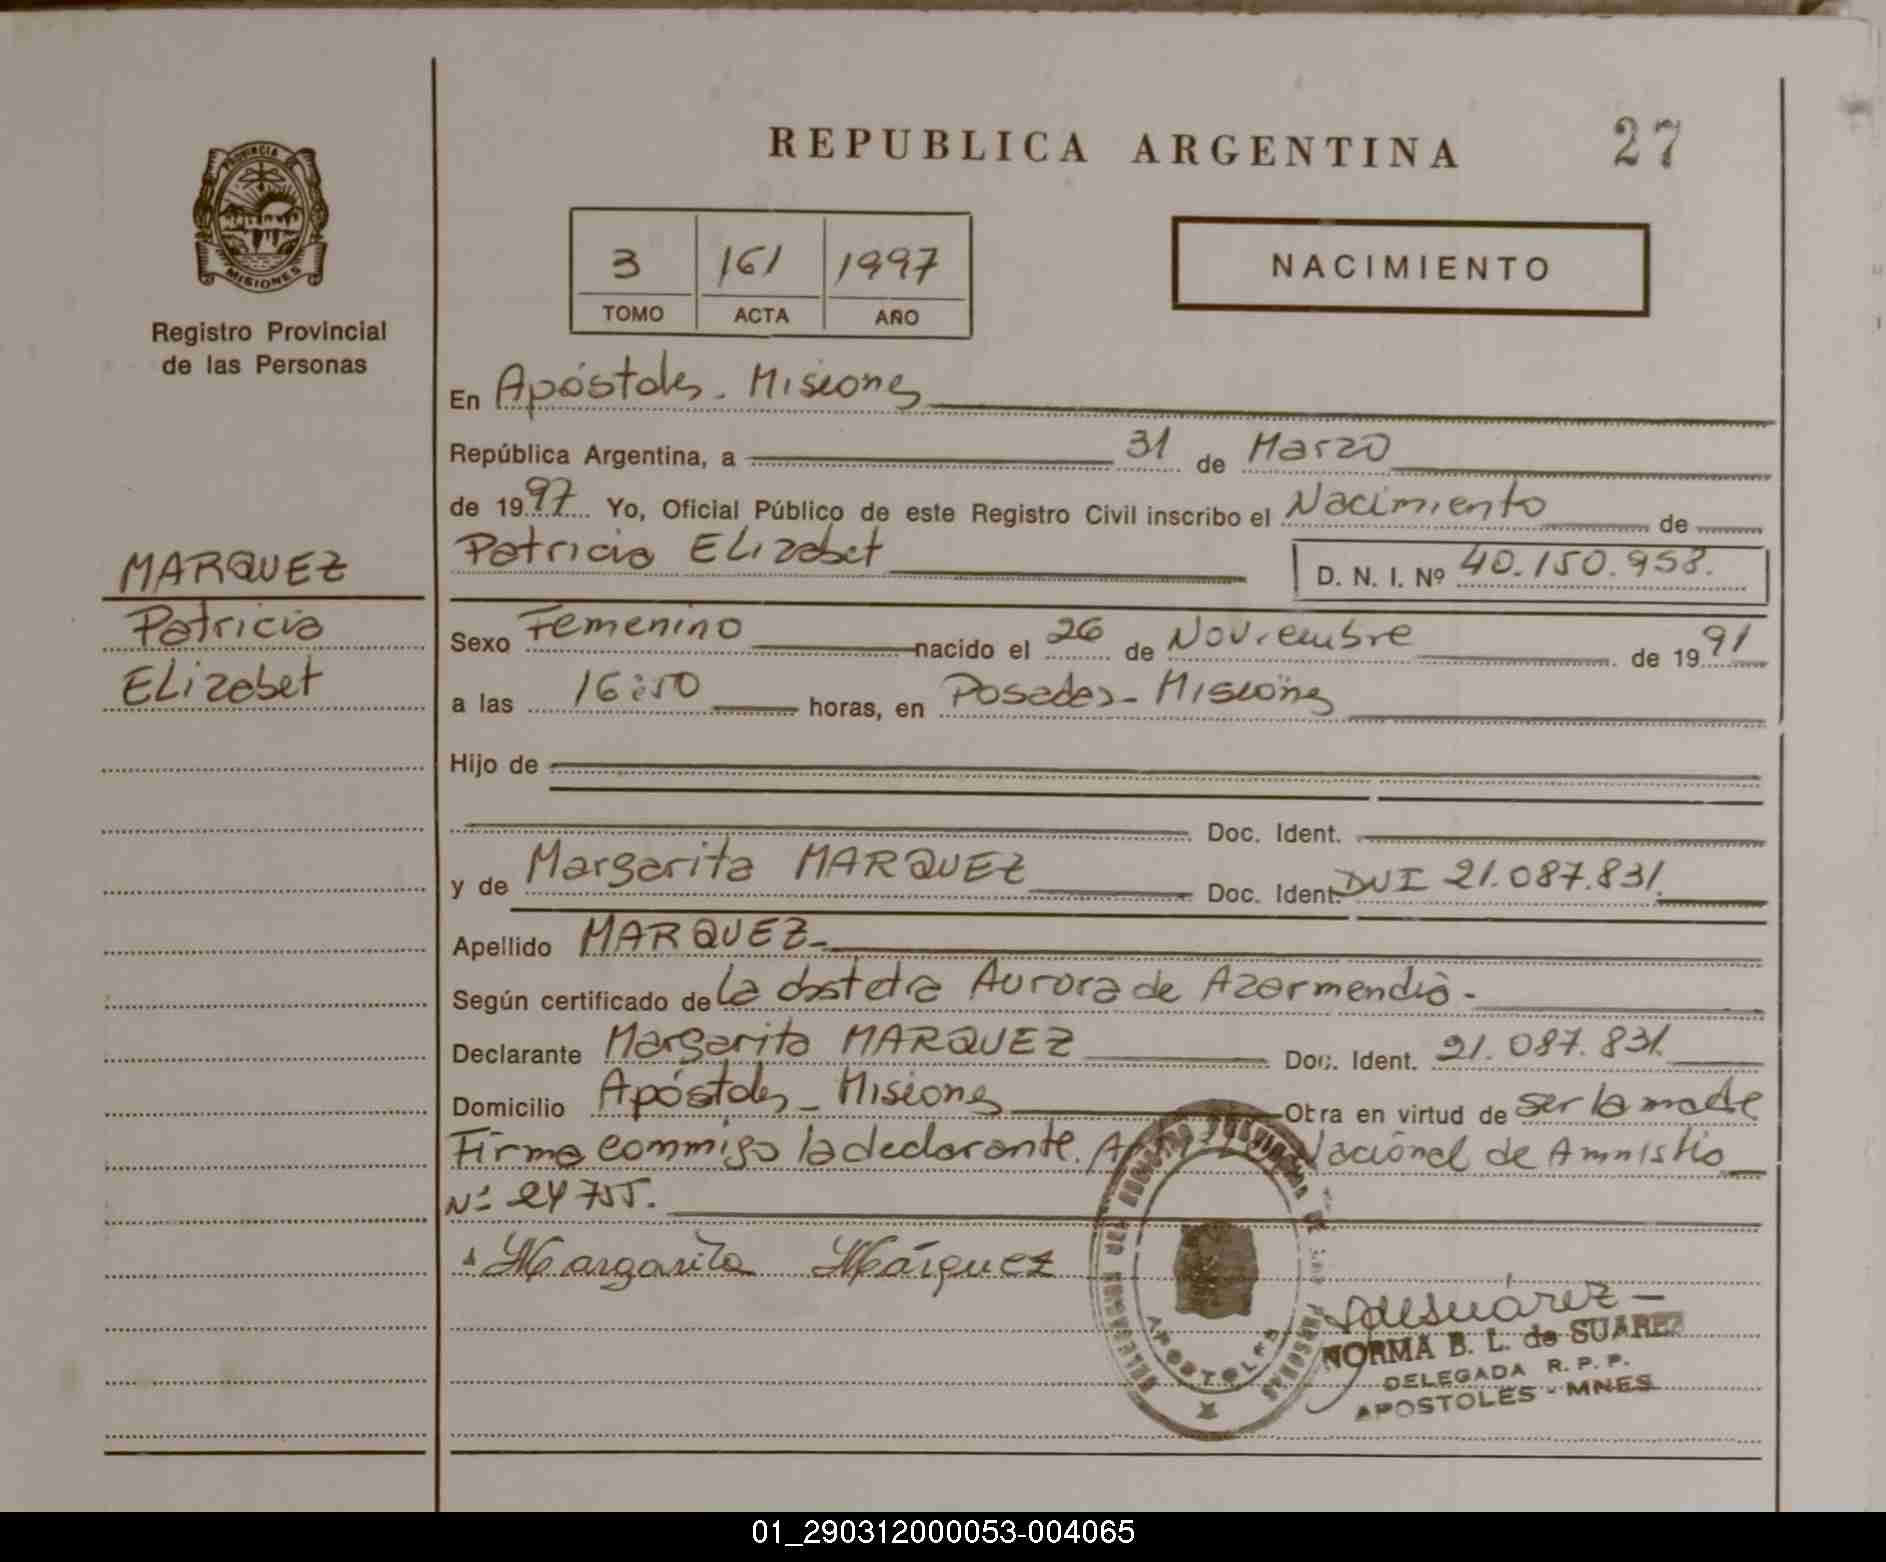 REPUBLICA ARGENTINA
27
PROVINCIA DE
MISIONES
Registro Provincial
de las Personas
3 161 1997
TOMO ACTA AÑO
NACIMIENTO
En Apóstoles - Misiones
República Argentina, a 31 de Marzo
de 1997 Yo, Oficial Público de este Registro Civil inscribo el Nacimiento de
Patricia Elizabet D. N. I. Nº 40.150.958.
MARQUEZ
Patricia
Elizabet
Sexo Femenino nacido el 26 de Noviembre de 1991
a las 16:50 horas, en Posadas - Misiones
Hijo de
Doc. Ident.
y de Margarita MARQUEZ Doc. Ident. DNI 21.087.831.
Apellido MARQUEZ -
Según certificado de la obstetra Aurora de Azarmendia -
Declarante Margarita MARQUEZ Doc. Ident. 21.087.831.
Domicilio Apóstoles - Misiones Otra en virtud de ser la madre
Firma conmigo la declarante. Nacional de Amnistia
Nº 24755.
Margarita Márquez
APOSTOLES
NORMA B. L. de SUAREZ
DELEGADA R. P. P.
APOSTOLES - MNES
01_290312000053-004065